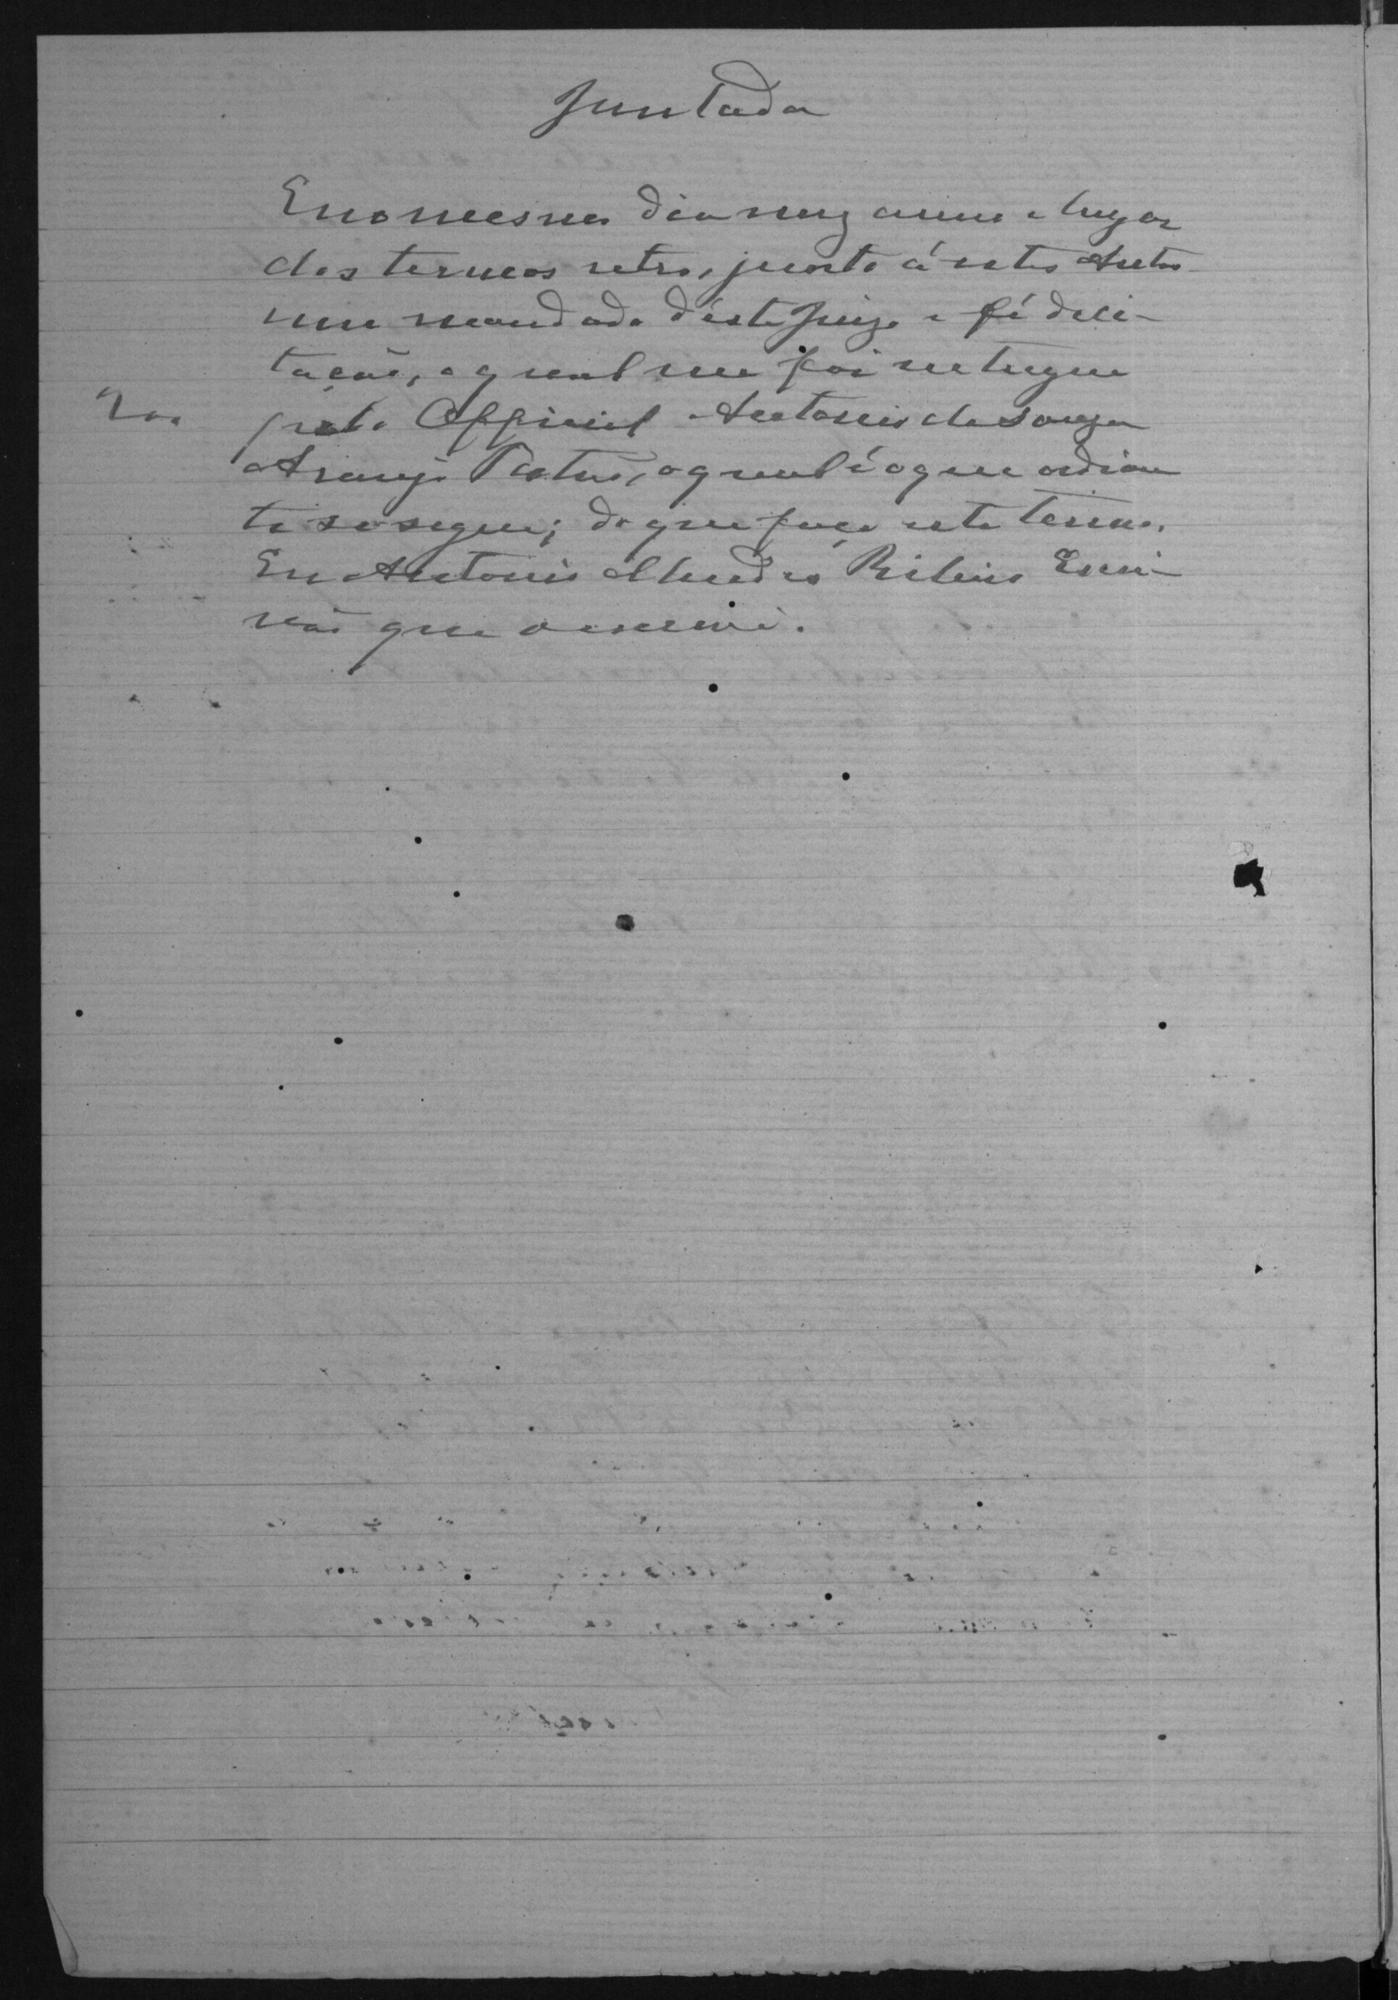 Juntada
E no mesmo dia mez anno e lugar
dos termos retro, junto á estes Autos
um mandado d'este Juizo e fé de ci-
tação, o qual me foi entregue
pelo Official Antonio de Souza
Araujo Pastur, o qual é o que adian
te se segue; do que faço este termo.
Eu Antonio Mendes Ribeiro Escri-
vão que o escrevi.